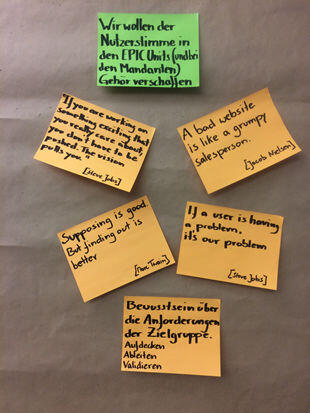 Wir wollen der
Nutzerstimme in
den EPIC Units (und bei
den Mandanten)
Gehör verschaffen
"If you are working on
something exciting that
you really care about
you don't have to be
pushed. The vision
pulls you."
[Steve Jobs]
A bad website
is like a grumpy
salesperson.
[Jacob Nielson]
Supposing is good.
But finding out is
better
[Marc Twain]
If a user is having
a problem,
it's our problem
[Steve Jobs]
Bewusstsein über
die Anforderungen
der Zielgruppe.
Aufdecken
Ableiten
Validieren